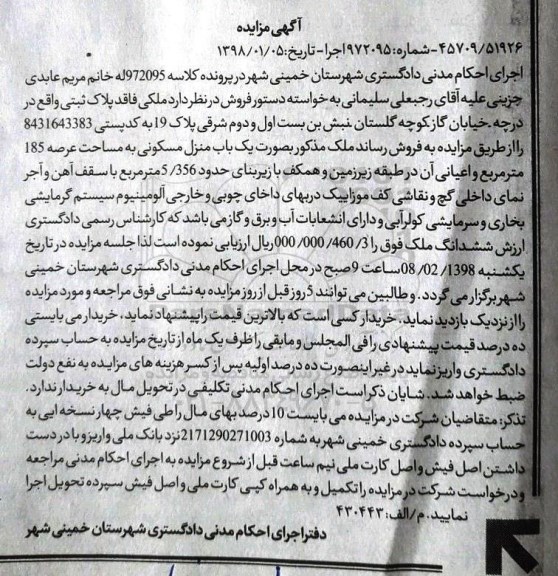 آگهی مزایده
۴۵۷۰۹/۵۱۹۲۶-شماره:۹۷۲۰۹۵اجرا-تاریخ:۱۳۹۸/۰۱/۰۵
اجرای احکام مدنی دادگستری شهرستان خمینی شهر در پرونده کلاسه 972095له خانم مریم عابدی
جزینی علیه آقای رجبعلی سلیمانی به خواسته دستور فروش در نظر دارد ملکی فاقد پلاک ثبتی واقع در
درچه .خیابان گاز کوچه گلستان .نبش بن بست اول و دوم شرقی پلاک 19به کدپستی 8431643383
را از طریق مزایده به فروش رساند ملک مذکور بصورت یک باب منزل مسکونی به مساحت عرصه 185
مترمربع و اعیانی آن در طبقه زیرزمین و همکف با زیربنای حدود 356/ 5مترمربع با سقف آهن و آجر
نمای داخلی گچ و نقاشی کف موزاییک دربهای داخای چوبی و خارجی آلومینیوم سیستم گرمایشی
بخاری و سرمایشی کولر آبی و دارای انشعابات آب و برق و گاز می باشد که کارشناس رسمی دادگستری
ارزش ششدانگ ملک فوق را 3/ 460/ 000/ 000ریال ارزیابی نموده است لذا جلسه مزایده در تاریخ
یکشنبه 1398 /02 /08ساعت 9صبح در محل اجرای احکام مدنی دادگستری شهرستان خمینی
شهر برگزار می گردد. و طالبین می توانند 5روز قبل از روز مزایده به نشانی فوق مراجعه و مورد مزایده
را از نزدیک بازدید نماید. خریدار کسی است که بالاترین قیمت را پیشنهاد نماید، خریدار می بایستی
ده درصد قیمت پیشنهادی را فی المجلس و مابقی را ظرف یک ماه از تاریخ مزایده به حساب سپرده
دادگستری واریز نماید در غیر اینصورت ده درصد اولیه پس از کسر هزینه های مزایده به نفع دولت
ضبط خواهد شد. شایان ذکر است اجرای احکام مدنی تکلیفی در تحویل مال به خریدار ندارد.
تذکر: متقاضیان شرکت در مزایده می بایست 10درصد بهای مال را طی فیش چهار نسخه ایی به
حساب سپرده دادگستری خمینی شهر به شماره 2171290271003نزد بانک ملی واریز و با در دست
داشتن اصل فیش و اصل کارت ملی نیم ساعت قبل از شروع مزایده به اجرای احکام مدنی مراجعه
و درخواست شرکت در مزایده را تکمیل و به همراه کپی کارت ملی و اصل فیش سپرده تحویل اجرا
نمایید. م/الف: ۴۳۰۴۴۳
دفتر اجرای احکام مدنی دادگستری شهرستان خمینی شهر